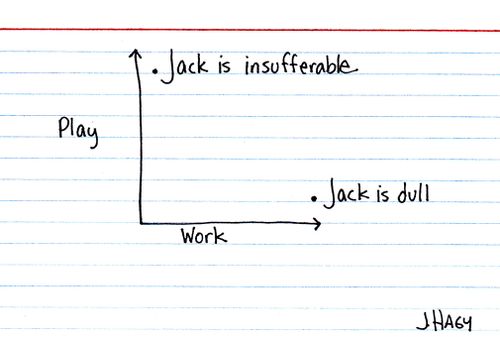 Jack is insufferable
Play
Jack is dull
Work
JHAGY